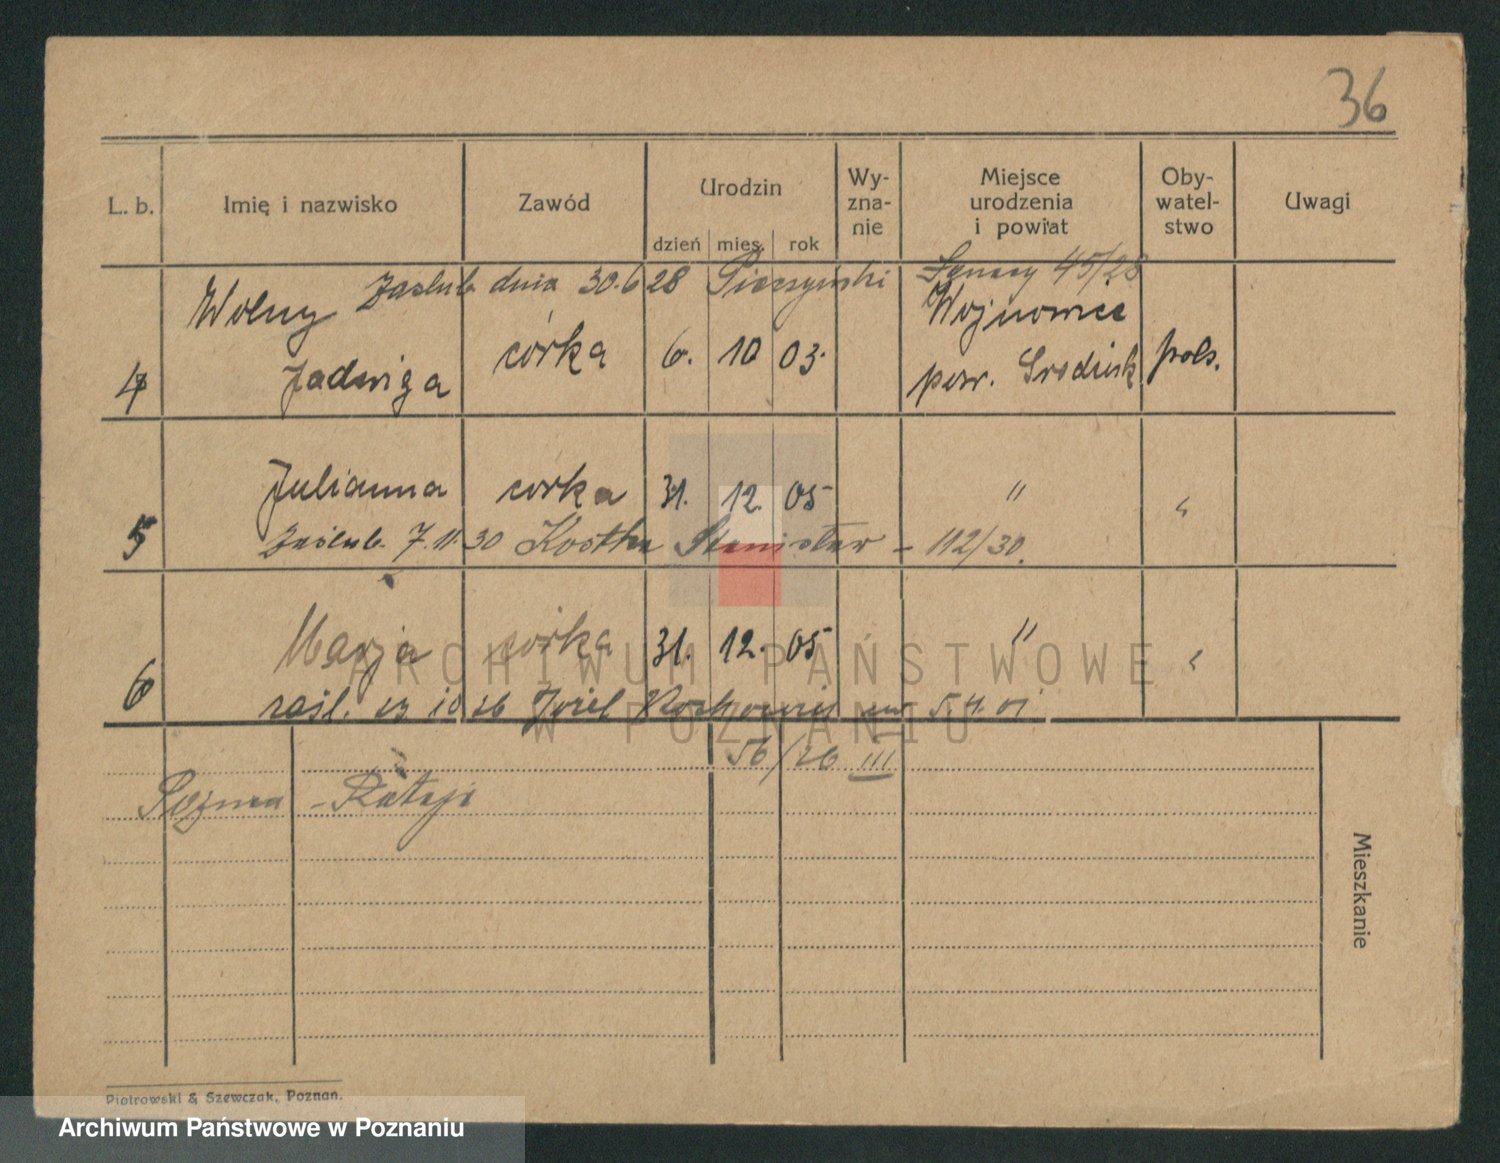 36
L. b. Imię i nazwisko Zawód Urodzin dzień mies. rok Wyznanie Miejsce urodzenia i powiat Obywatelstwo Uwagi
Zaślub. dnia 30.6 28 Pierzyński Ignacy 45/28
Wolny Wojnowice
4 Jadwiga córka 6. 10 03. pow. Grodzisk pols.
5 Julianna córka 31. 12. 05 " "
Zaślub. 7.11.30 Kostka Stanisław - 112/30.
6 Marja córka 31. 12. 05 " "
zaśl. 10 26 Józef ur. 5.4.01
56/26 III
- Rataje
Mieszkanie
Piotrowski & Szewczak, Poznań.
ARCHIWUM PAŃSTWOWE
W POZNANIU
Archiwum Państwowe w Poznaniu